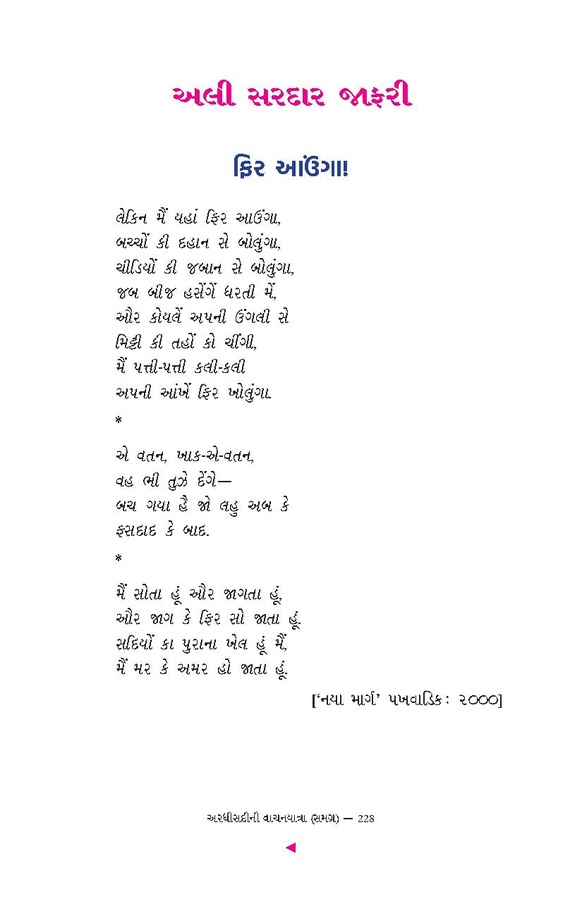 અલી સરદાર જાફરી
ફિર આંઉગા!
લેકિન મૈં યહાં ફિર આઉંગા,
બચ્ચોં કી દહાન સે બોલુંગા,
ચીડિયોં કી જબાન સે બોલુંગા,
જબ બીજ હસેંગેં ધરતી મેં,
ઔર કોયલેં અપની ઉંગલી સે
મિટ્ટી કી તહોં કો ચીંગી,
મૈં પત્તી-પત્તી કલી-કલી
અપની આંખેં ફિર ખોલુંગા.
*
એ વતન, ખાક-એ-વતન,
વહ ભી તુઝે દેંગે—
બચ ગયા હૈ જો લહુ અબ કે
ફસદાદ કે બાદ.
*
મૈં સોતા હૂં ઔર જાગતા હૂં,
ઔર જાગ કે ફિર સો જાતા હૂં.
સદિયોં કા પુરાના ખેલ હૂં મૈં,
મૈં મર કે અમર હો જાતા હૂં.
[‘નયા માર્ગ’ પખવાડિક: ૨૦૦૦]
અરધીસદીની વાચનયાત્રા (સમગ્ર) — 228